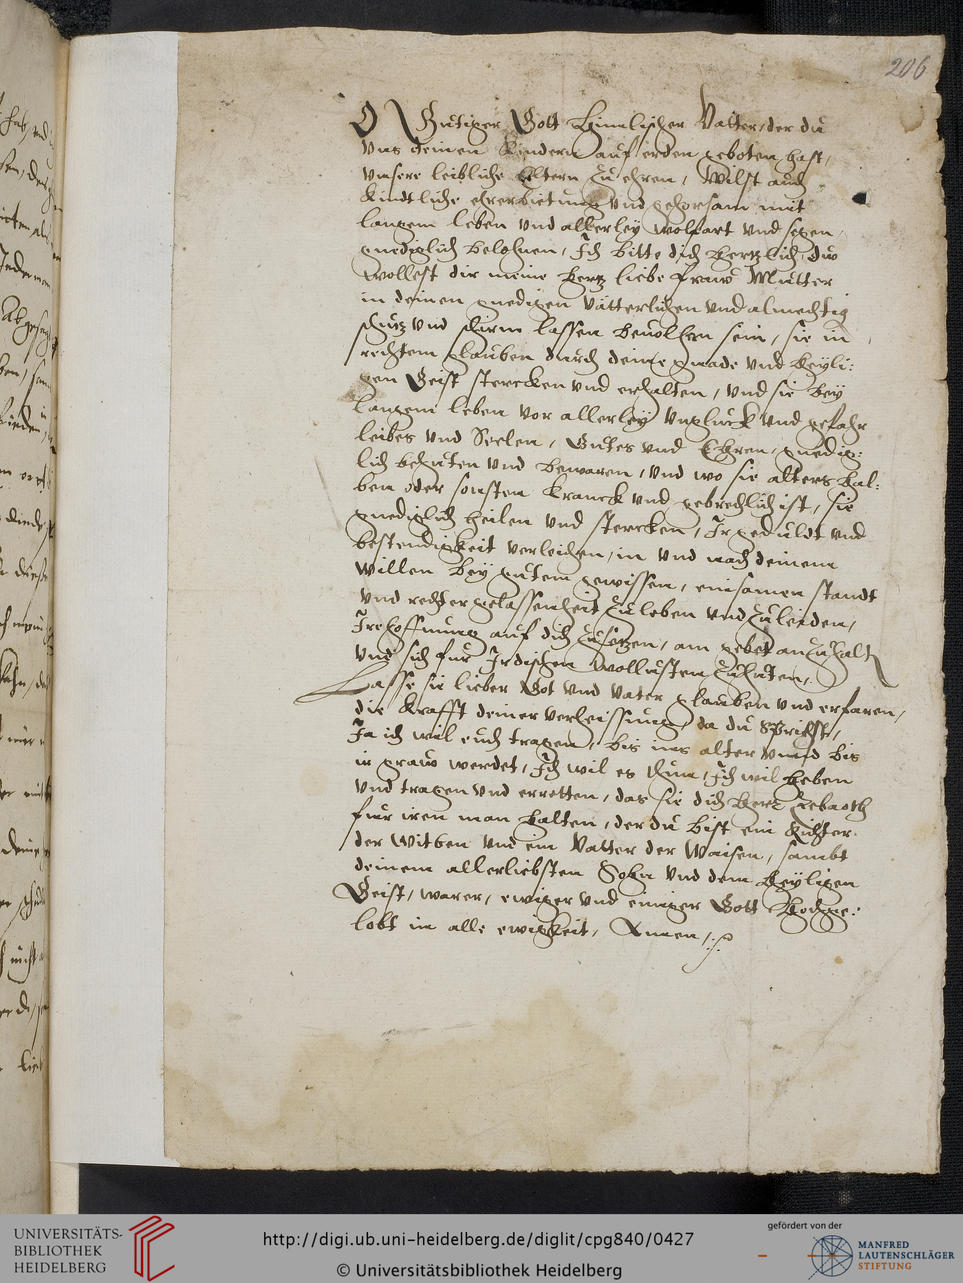 206
O Gutiger Gott Himlischer Vatter, der du
vns deinen Kindern auf erden geboten hast,
vnsere leibliche Eltern zu ehren, Wilst auch
Kindtliche ehrerbietung vnd gehorsam mit
langem leben vnd allerley wolfart vnd segen,
gnediglich belohnen, Ich bitte dich hertzlich, du
wollest dir meine hertz liebe fraw Mutter
in deinen gnedigen vätterlichen vnd almechtig
schutz vnd schirm lassen beuolhen sein, sie in
rechtem glauben durch deine gnade vnd heyli:
gen Geist stercken vnd erhalten, vnd sie bey
langem leben vor allerley vngluck vnd gefahr
leibes vnd Seelen, Gutes vnd Ehren, gnedig:
lich behuten vnd bewaren, vnd wo sie alters hal:
ben oder sonsten kranck vnd gebrechlich ist, sie
gnediglich heilen vnd stercken, Ir geduldt vnd
bestendigkeit verleihen, in vnd nach deinem
willen bey gutem gewissen, einsamen standt
vnd rechter gelassenheit zu leben vnd zu leiden,
Ire hoffnung auf dich zu setzen, am gebet anzuhalt
vnd sich fur Irdischen wollusten zuhuten,
Lasse sie lieber Got vnd Vater glauben vnd erfaren,
die krafft deiner verheissung da du Sprichst,
Ja ich wil euch tragen, bis ins alter vnnd bis
ir graw werdet, Ich wil es thun, Ich wil heben
vnd tragen vnd erretten, das sie dich Herr Zebaoth
fur iren man halten, der du bist ein Richter
der Witben vnd ein Vatter der Waisen, sambt
deinem allerliebsten Sohn vnd dem heyligen
Geist, warer, ewiger vnd einiger Gott Hochge:
lobt in alle ewigkeit, Amen,
UNIVERSITÄTS-
BIBLIOTHEK
HEIDELBERG
http://digi.ub.uni-heidelberg.de/diglit/cpg840/0427
© Universitätsbibliothek Heidelberg
gefördert von der
MANFRED
LAUTENSCHLÄGER
STIFTUNG